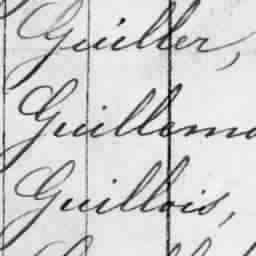 Guiller,
Guillemo
Guillois,